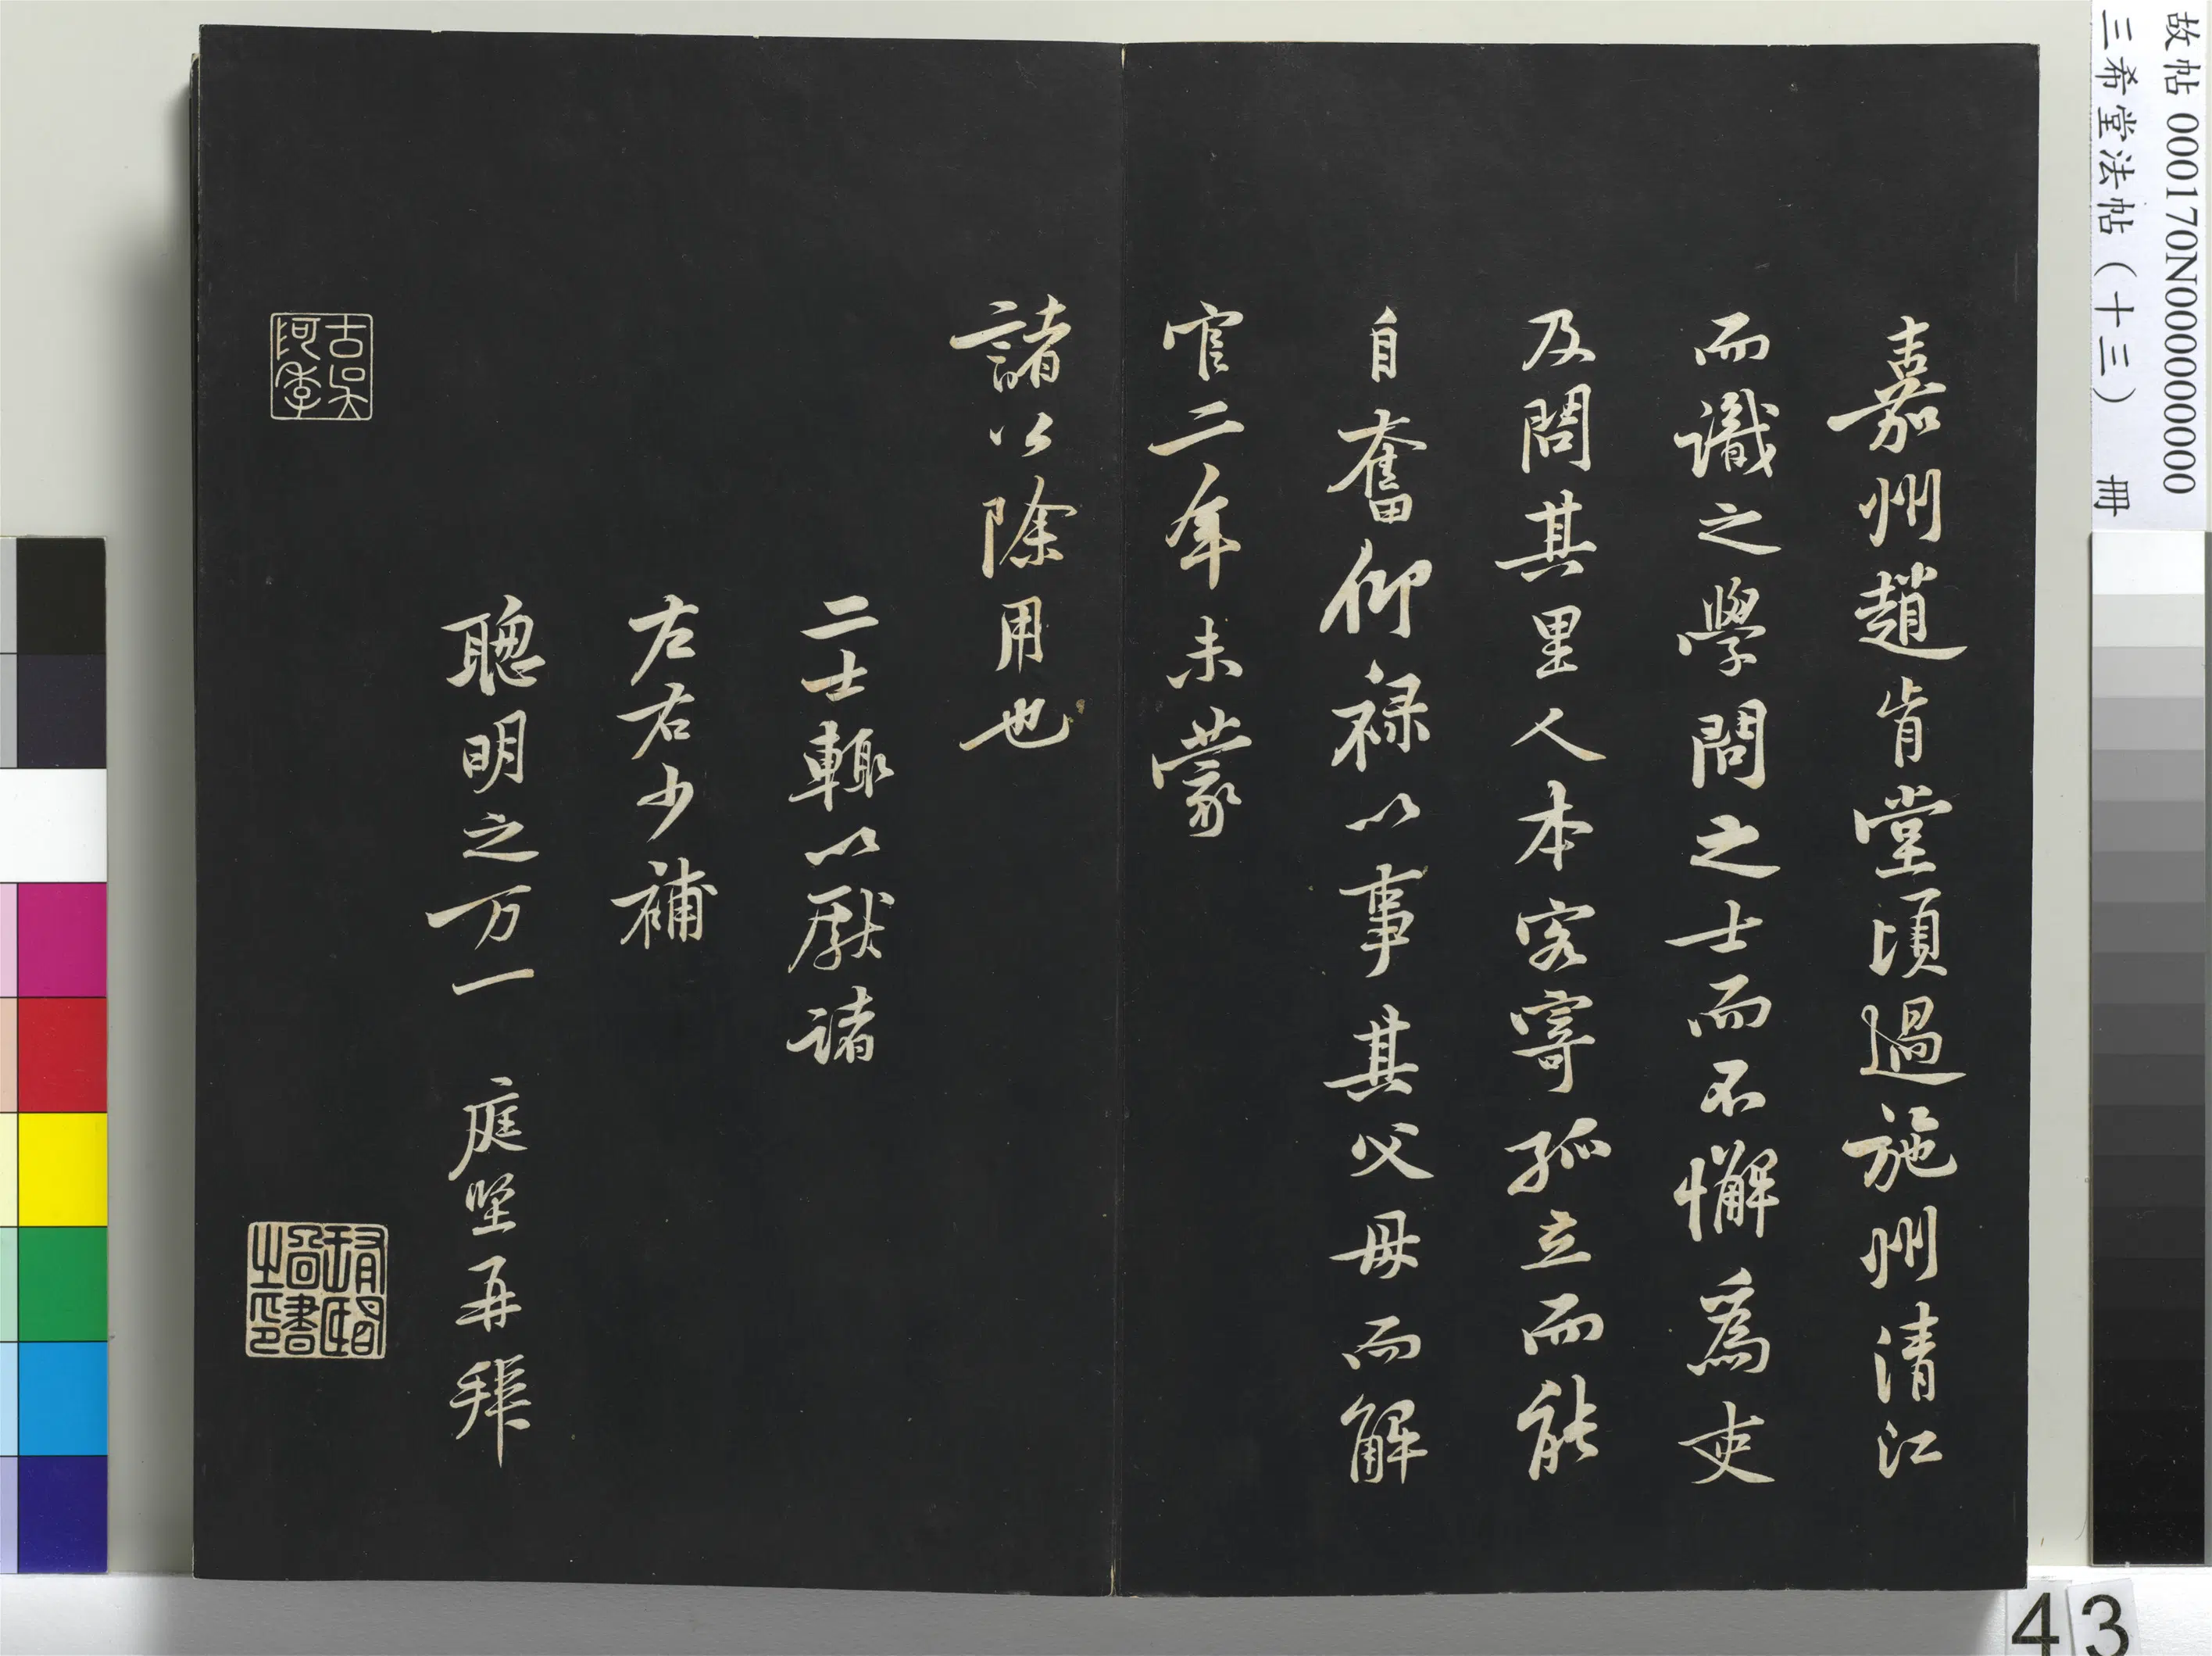 故帖 000170N000000000
三希堂法帖（十三） 冊
嘉州趙肯堂頃過施州清江
而識之學問之士而不懈為吏
及問其里人本客寄孤立而能
自奮仰祿以事其父母而解
官二年未蒙
諸公除用也
二士輒以獻諸
左右少補
聰明之万一 庭堅再拜
43